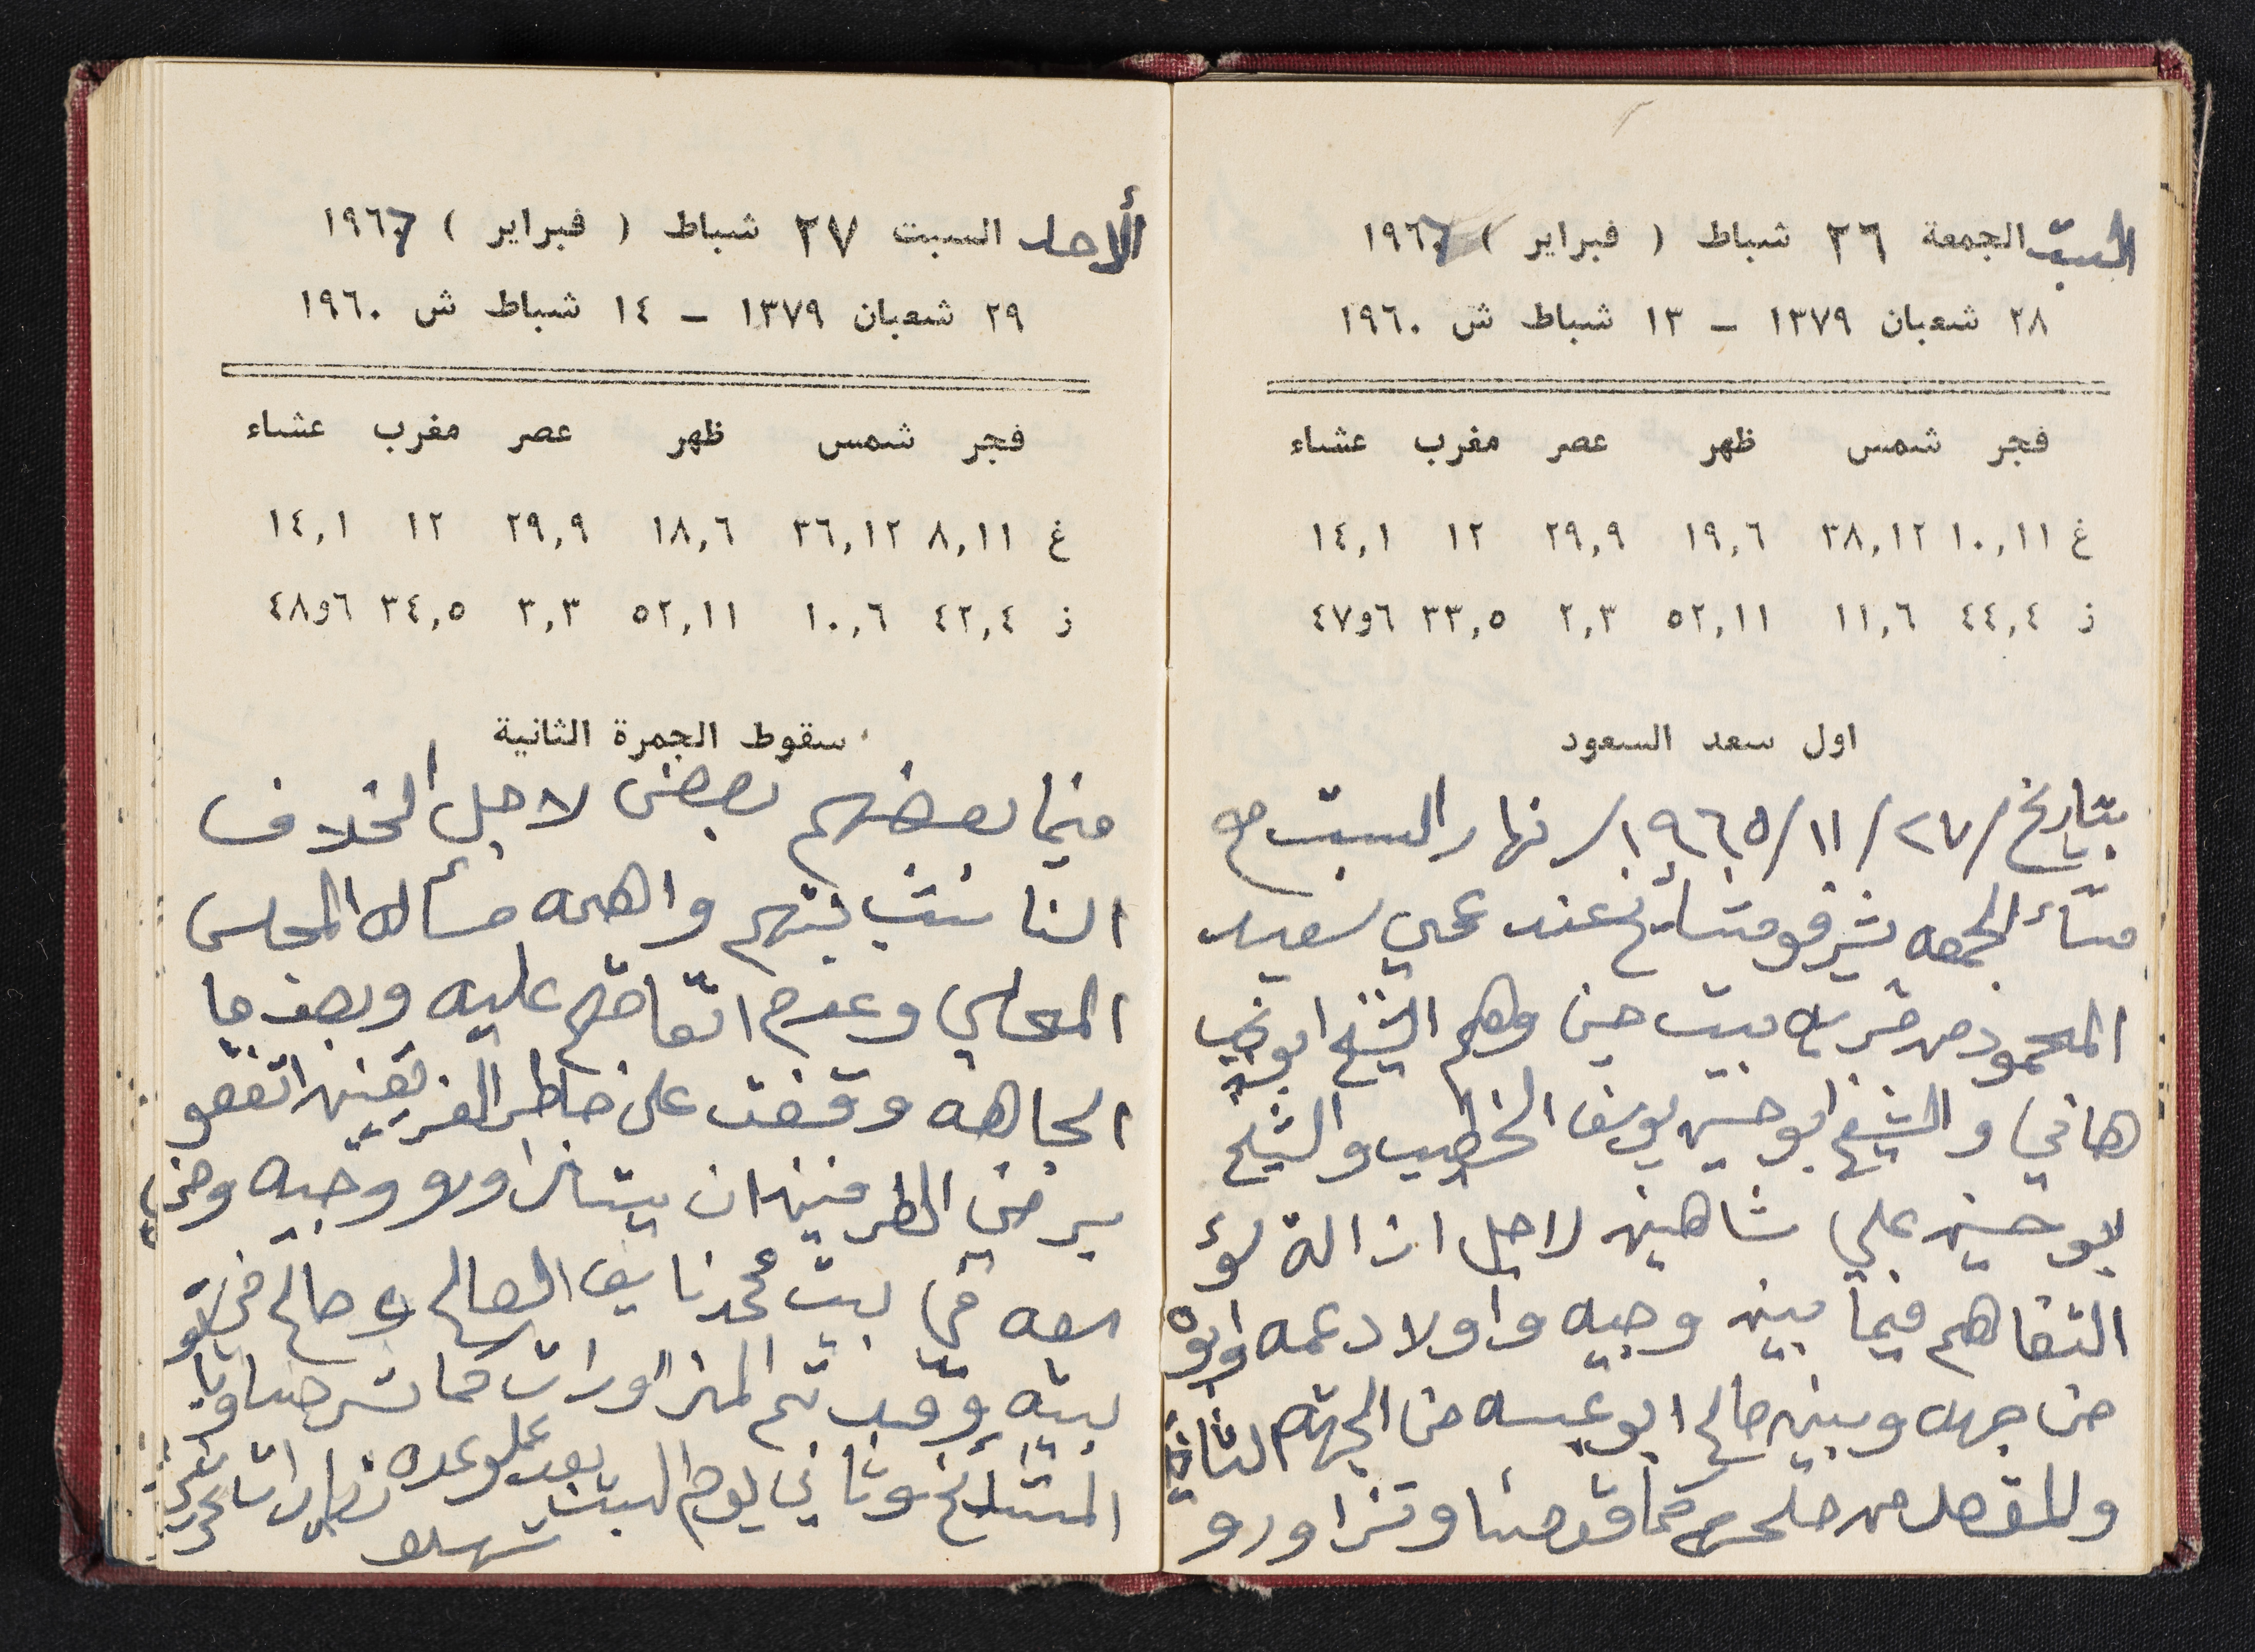 السبت الجمعة ٢٦ شباط ( فبراير ) ١٩٦٧
٢٨ شعبان ١٣٧٩ – ١٣ شباط ش ١٩٦٠
فجر شمس ظهر عصر مغرب عشاء
غ ١٠,١١ ٣٨,١٢ ١٩,٦ ٢٩,٩ ١٢ ١٤,١
ز ٤٤,٤ ١١,٦ ٥٢,١١ ٢,٣ ٣٣,٥ ٦و٤٧
اول سعد السعود
بتاريخ /٢٧/ ١١/ ١٩٦٥/ نهار السبت
مسآء الجمعه شرفو مشايخ عند عمي سعيد
المحمود من قريه بيت جن وهم الشيخ ابو
هاني والشيخ ابو حسين يوسف الخطيب والشيخ
ابو حسين علي شاهين لاجل ازالة سؤ
التفاهم فيما بين وجيه واولاد عمه
من جهه وبين صالح ابو عيسه من الجهه الثانية
والمقصد من صلحهم قدمنا وتزاورو
الأحد السبت ٢٧ شباط ( فبراير ) ١٩٦٧
٢٩ شعبان ١٣٧٩ – ١٤ شباط ش ١٩٦٠
فجر شمس ظهر عصر مغرب عشاء
غ ٨,١١ ٣٦,١٢ ١٨,٦ ٢٩,٩ ١٢ ١٤,١
ز ٤٢,٤ ١٠,٦ ٥٢,١١ ٣,٣ ٣٤,٥ ٦و٤٨
سقوط الجمرة الثانية
فيما بعضهم بعض لاجل الخلاف
الناشب بينهم واهمه مسألة المجلس
المحلي وعدم اتفاقهم عليه وبعد ما
الجاهه وقفت على خاطر الفريقين اتفقو
برضى الطرفين ان يتزاورو وجيه
معه في بيت محمد نايف الصالح وصالح
بيته وقد تم المزاورات
المشايخ وثاني يوم السبت بعد